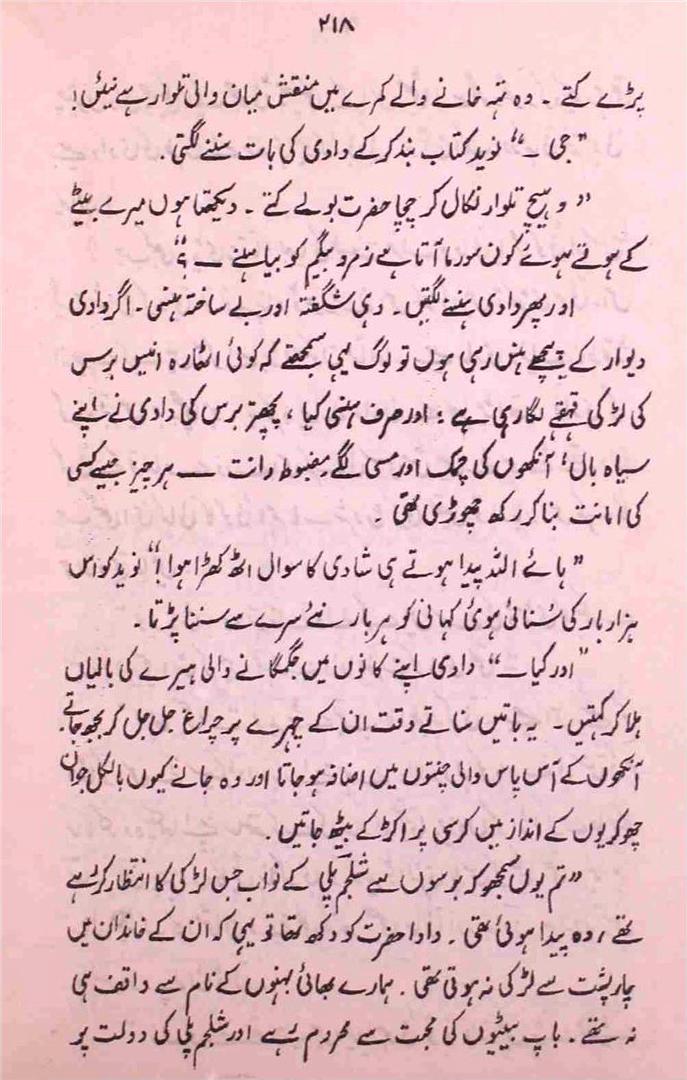 ۲۱۸
پڑے کتے ۔ وہ تہہ خانے والے کمرے میں منقش میان والی تلوار ہے نیئں !
”جی ۔“ نوید کتاب بند کر کے دادی کی بات سننے لگتی ۔
” وہیچ تلوار نکال کر چچا حضرت بولے کتے ۔ دیکھتا ہوں میرے بیٹے
کے ہوتے ہوئے کون سورما آتا ہے زمرد بیگم کو بیاہنے ـــ ؟“
اور پھر دادی ہنسنے لگتیں ۔ وہی شگفتہ اور بے ساختہ ہنسی ۔ اگر دادی
دیوار کے پیچھے ہنس رہی ہوں تو لوگ یہی سمجھتے کہ کوئی اٹھارہ انیس برس
کی لڑکی قہقہے لگا رہی ہے ؛ اور صرف ہنسی کیا ، پچھتر برس کی دادی نے اپنے
سیاہ بال ، آنکھوں کی چمک اور مسی لگے مضبوط دانت ـــ ہر چیز جیسے کسی
کی امانت بنا کر رکھ چھوڑی تھی ۔
” ہائے اللہ پیدا ہوتے ہی شادی کا سوال اٹھ کھڑا ہوا !“ نوید کو اس
ہزار بار کی سُنائی ہوئی کہانی کو ہر بار نئے سُرے سے سننا پڑتا ۔
”اور کیا ـــ“ دادی اپنے کانوں میں جگمگانے والی ہیرے کی بالیاں
ہلا کر کہتیں ۔ یہ باتیں سناتے وقت ان کے چہرے پر چراغ جل جل کر بجھ جاتے
آنکھوں کے آس پاس والی چنتوں میں اضافہ ہو جاتا اور وہ جانے کیوں بالکل جوان
چھوکریوں کے انداز میں کرسی پر اکڑ کے بیٹھ جاتیں ۔
”تم یوں سمجھو کہ برسوں سے شلجم پلّی کے نواب جس لڑکی کا انتظار کر رہے
تھے ، وہ پیدا ہوئی تھی ۔ دادا حضرت کو دکھ تھا تو یہی کہ ان کے خاندان میں
چار پشت سے لڑکی نہ ہوتی تھی ۔ ہمارے بھائی بہنوں کے نام سے واقف ہی
نہ تھے ۔ باپ بیٹیوں کی محبت سے محروم رہے اور شلجم پلی کی دولت پر